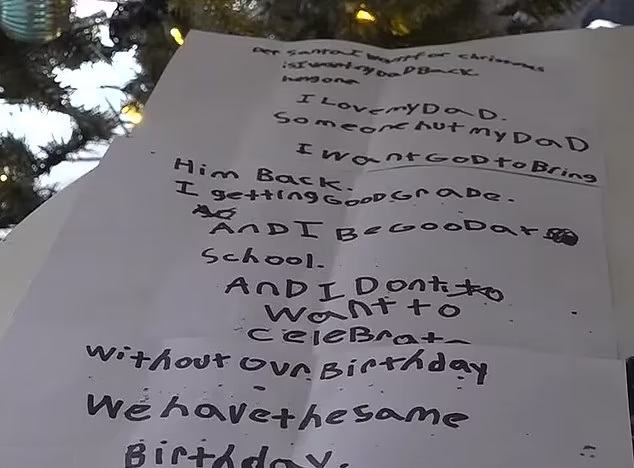 Der Santa I want for christmas
is I want my DaD Back.
I Love my DaD.
Someone hut my DaD
I want GOD to Bring
Him Back.
I getting GooD Grade.
AND I Be GooD at
School.
AND I Dont to
want to
celeBrat
without our Birthday
We have the same
Birthday.